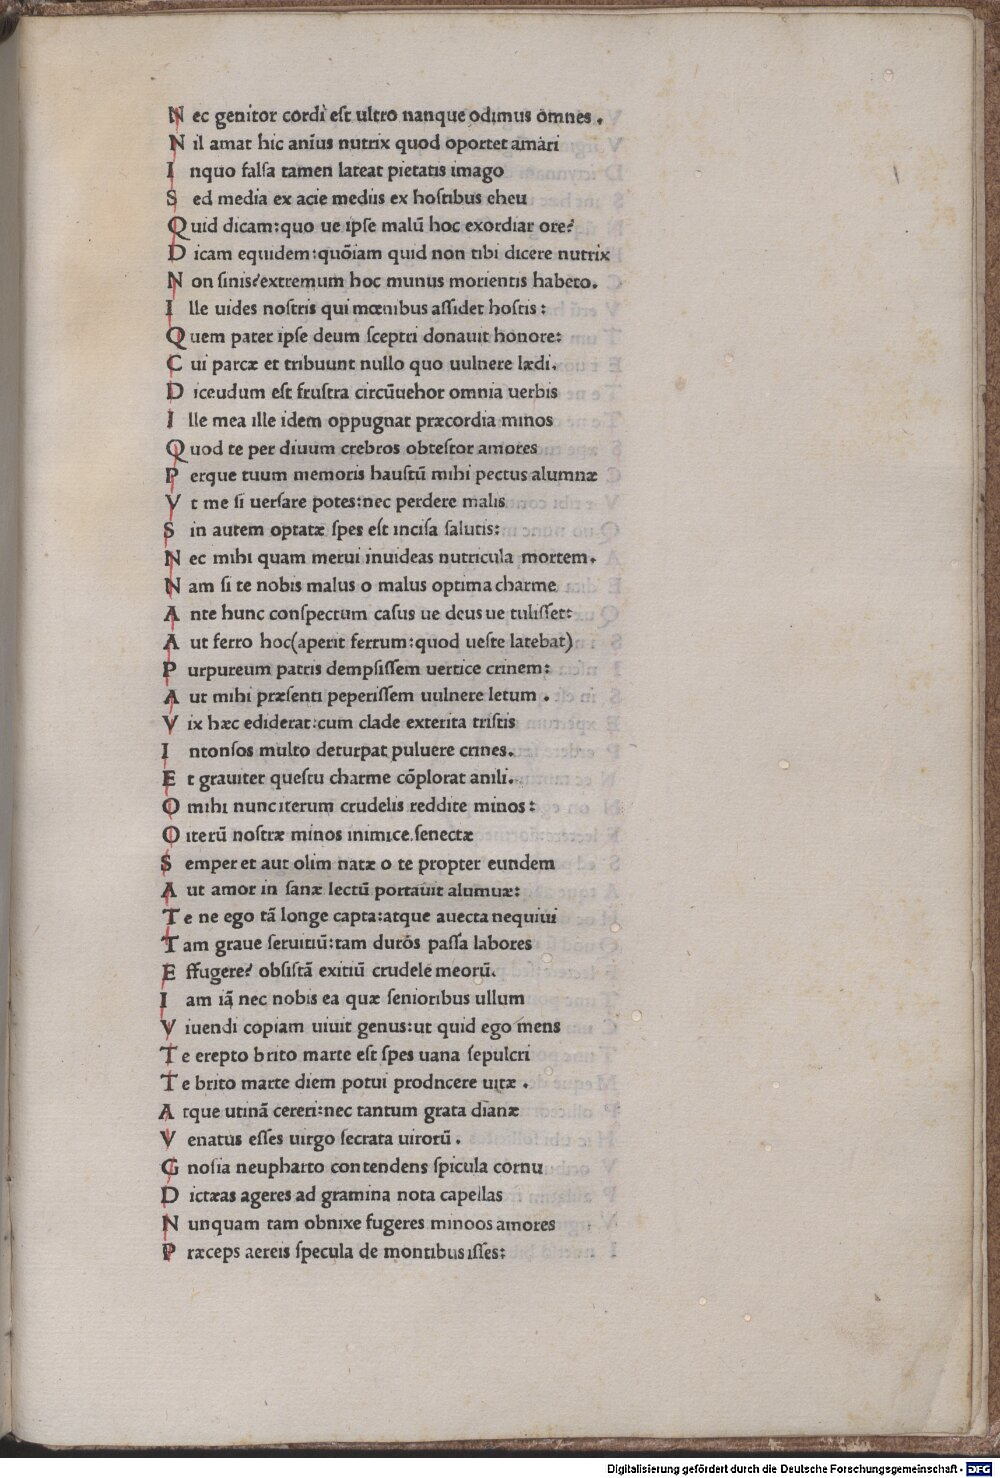 N ec genitor cordi eſt ultro nanque odimus omnes .
N il amat hic anīus nutrix quod oportet amari
I nquo falſa tamen lateat pietatis imago
S ed media ex acie mediis ex hoſtibus eheu
Q uid dicam:quo ue ipſe malū hoc exordiar ore?
D icam equidem:quōiam quid non tibi dicere nutrix
N on ſinis?extremum hoc munus morientis habeto.
I lle uides noſtris qui mœnibus aſſidet hoſtis :
Q uem pater ipſe deum ſceptri donauit honore:
C ui parcæ et tribuunt nullo quo uulnere lædi.
D iceudum eſt fruſtra circūuehor omnia uerbis
I lle mea ille idem oppugnat præcordia minos
Q uod te per diuum crebros obteſtor amores
P erque tuum memoris hauſtū mihi pectus alumnæ
V t me ſi uerſare potes:nec perdere malis
S in autem optatæ ſpes eſt inciſa ſalutis:
N ec mihi quam merui inuideas nutricula mortem.
N am ſi te nobis malus o malus optima charme
A nte hunc conſpectum caſus ue deus ue tuliſſet:
A ut ferro hoc(aperit ferrum:quod ueſte latebat)
P urpureum patris dempſiſſem uertice crinem:
A ut mihi præſenti peperiſſem uulnere letum .
V ix hæc ediderat:cum clade exterita triſtis
I ntonſos multo deturpat puluere crines.
E t grauiter queſtu charme cōplorat anili.
O mihi nunc iterum crudelis reddite minos :
O iterū noſtræ minos inimice ſenectæ
S emper et aut olim natæ o te propter eundem
A ut amor in ſanæ lectū portauit alumuæ:
T e ne ego tā longe capta:atque auecta nequiui
T am graue ſeruitiū:tam duros paſſa labores
E ffugere? obſiſtā exitiū crudele meorū.
I am iā nec nobis ea quæ ſenioribus ullum
V iuendi copiam uiuit genus:ut quid ego mens
T e erepto brito marte eſt ſpes uana ſepulcri
T e brito marte diem potui prodncere uitæ .
A tque utinā cereri:nec tantum grata dianæ
V enatus eſſes uirgo ſecrata uirorū .
G noſia neupharto contendens ſpicula cornu
D ictæas ageres ad gramina nota capellas
N unquam tam obnixe fugeres minoos amores
P ræceps aereis ſpecula de montibus iſſes:
Digitalisierung gefördert durch die Deutsche Forschungsgemeinschaft - DFG